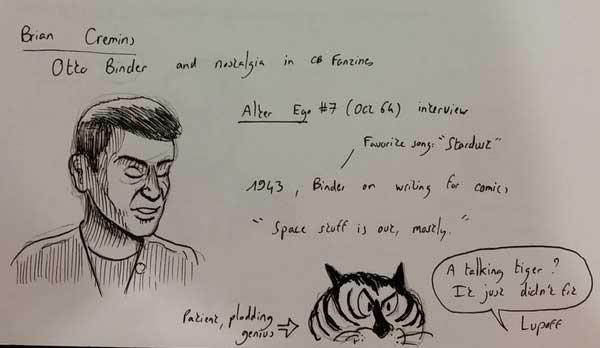 Brian Cremins
Otto Binder and nostalgia in CB Fanzines
Alter Ego #7 (Oct 64) interview
Favorite song: "Stardust"
1943, Binder on writing for comics
"Space stuff is out, mostly."
A talking tiger?
It just didn't fit
Lupoff
Patient, plodding
genius